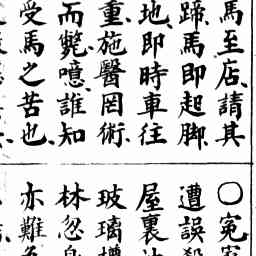 馬至店、請其
蹄、馬即起脚、
地、即時車往
重、施醫罔術、
而斃、噫、誰知
受馬之苦也、
〇寃
遭誤
屋裏
玻璃
林忽
亦難